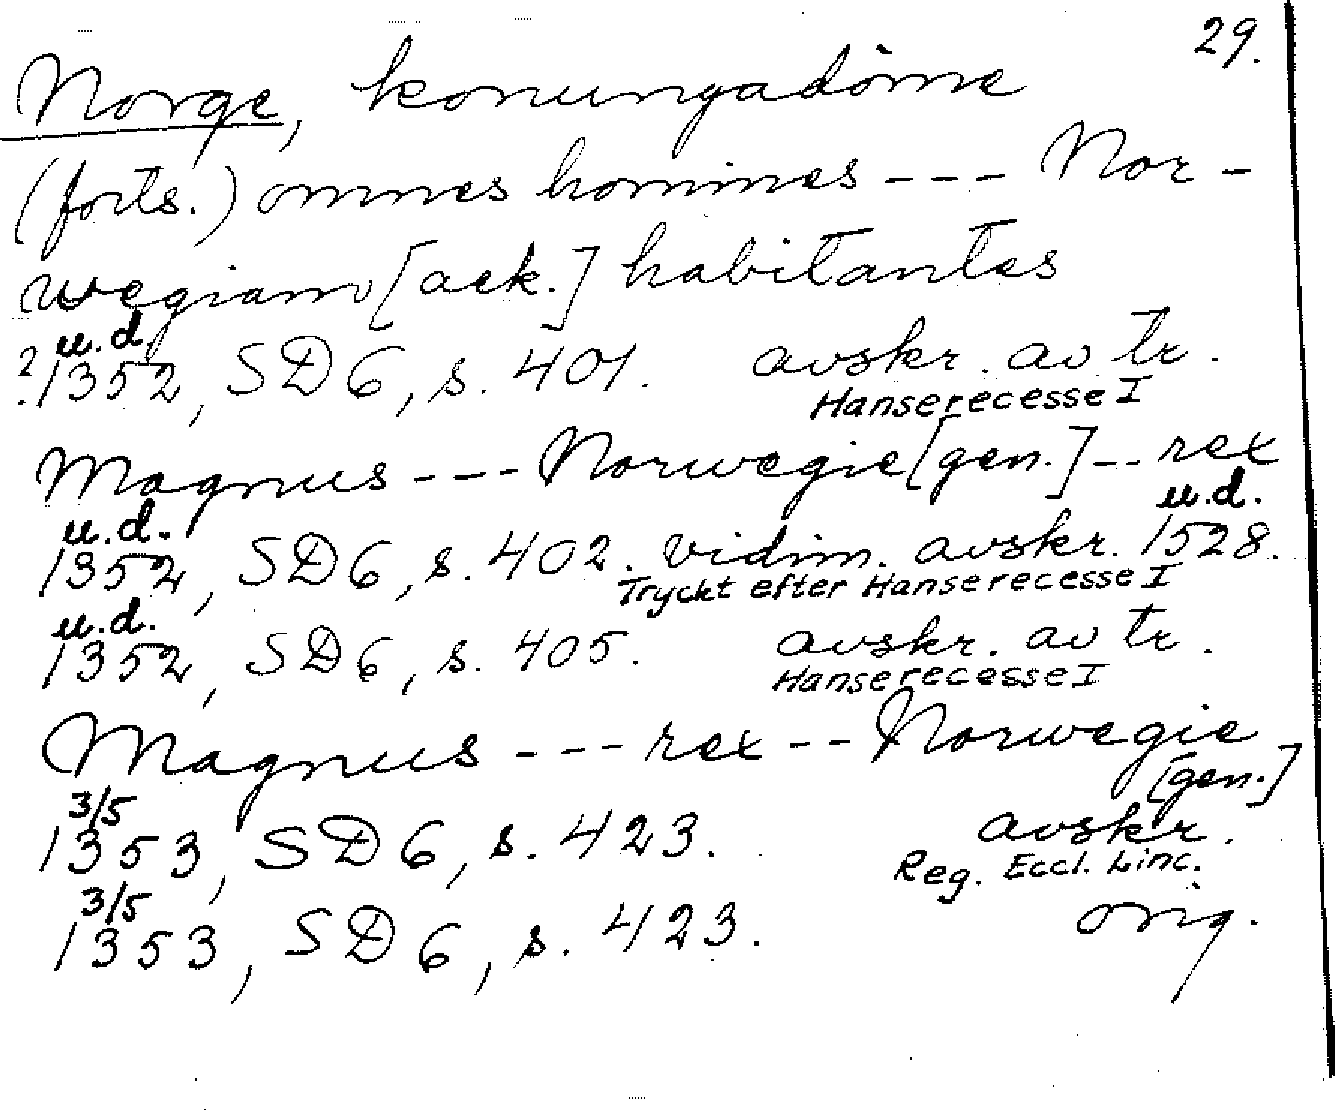 29.
Norge, konungadöme
(forts.) omnes homines --- Nor-
wegiam [ack.] habitantes
u.d.
?1352, SD 6, s. 401. avskr. av tr.
Hanserecesse I
Magnus --- Norwegie [gen.] -- rex
u.d. u.d.
1352, SD 6, s. 402. vidim. avskr. 1528.
Tryckt efter Hanserecesse I
u.d.
1352, SD 6, s. 405. avskr. av tr.
Hanserecesse I
Magnus --- rex -- Norwegie
[gen.]
3/5
1353, SD 6, s. 423. avskr.
Reg. Eccl. Linc.
3/5
1353, SD 6, s. 423. orig.